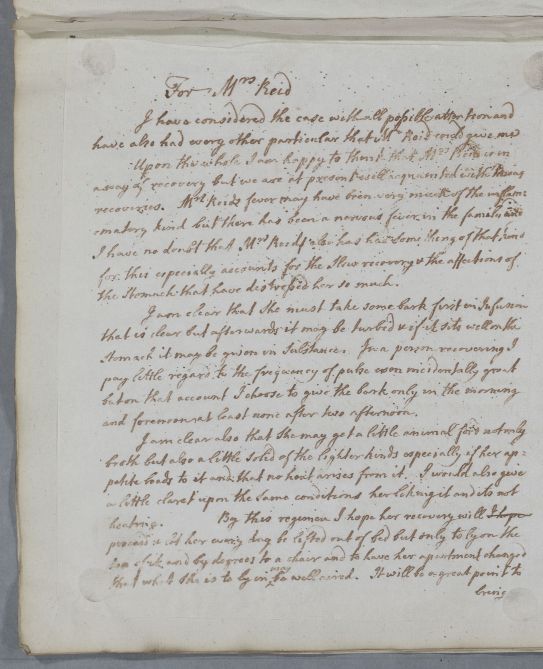 For Mrs Reid
I have considered the case with all possible attention and
have also had every other particular that Mr Reid could give me
Upon the whole I am happy to think that Mrs Reid is in
a way of recovery but we are at present well acquainted with
recoveries. Mrs Reids fever may have been very much of the inflam:
matory kind but there has been a nervous fever in the family and
I have no doubt that Mrs Reids also has had something of that kind
for this especially accounts for the slow recovery & the affections of
the Stomach that have distressed her so much.
I am clear that She must take some bark first in Infusion
that is clear but afterwards it may be turbid & if it sits well on the
Stomach it may be given in Substance. In a person recovering I
pay little regard to the frequency of pulse even incidentally great
but on that account I choose to give the bark only in the morning
and forenoon at least none after two afternoon.
I am clear also that She may get a little animal food not only
broth but also a little solid of the lighter kinds especially if her ap:
petite leads to it and that no heat arises from it. I would also give
a little claret upon the same conditions her liking it and its not
heating. By this regimen I hope her recovery will I hope
proceed & let her every day be lifted out of bed but only to ly on the
top of it and by degrees to a chair and to have her apartment changed
that what She is to ly in may be well aired. It will be a great point to
bring